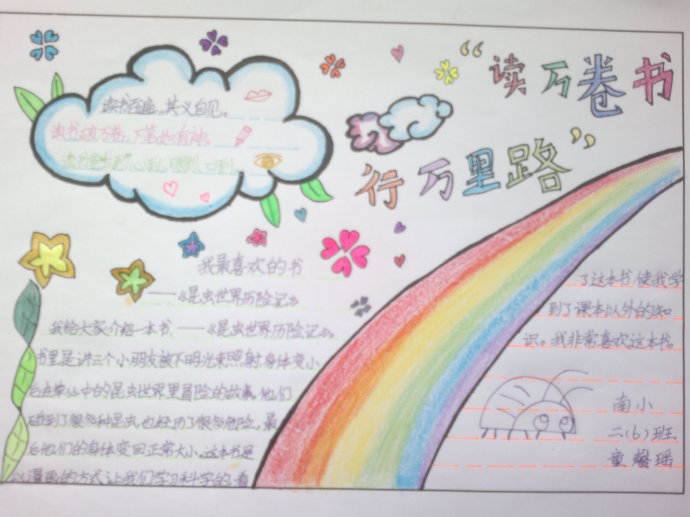 “读万卷书
行万里路”
读书百遍，其义自见。
读书破万卷，下笔如有神。
读书有三到，心到，眼到，口到。
我最喜欢的书
——《昆虫世界历险记》
我给大家介绍一本书——《昆虫世界历险记》。
书里是讲三个小朋友被不明光束照射，身体变小
后在中的昆虫世界里冒险的故事。他们
碰到了很多种昆虫，也经历了很多危险，最
后他们的身体变回正常大小。这本书是
以漫画的方式，让我们学习科学的。看
了这本书，使我学
到了课本以外的知
识。我非常喜欢这本书。
南小
二（6）班
童馨瑶